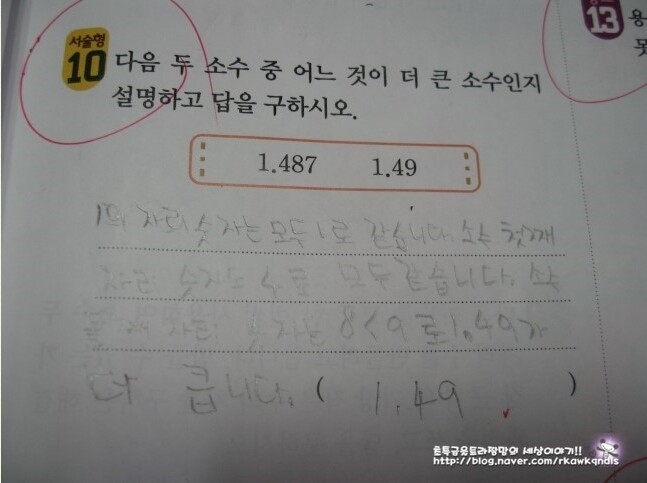 서술형
10 다음 두 소수 중 어느 것이 더 큰 소수인지
설명하고 답을 구하시오.
1.487 1.49
1의 자리 숫자는 모두 1로 같습니다. 소수 첫째
자리 숫자도 4로 모두 같습니다. 소수
둘째 자리 숫자는 8<9로 1.49가
더 큽니다. ( 1.49 )
13 용
못
초특급울트라짱맘의 세상이야기!!
http://blog.naver.com/rkawkqndls